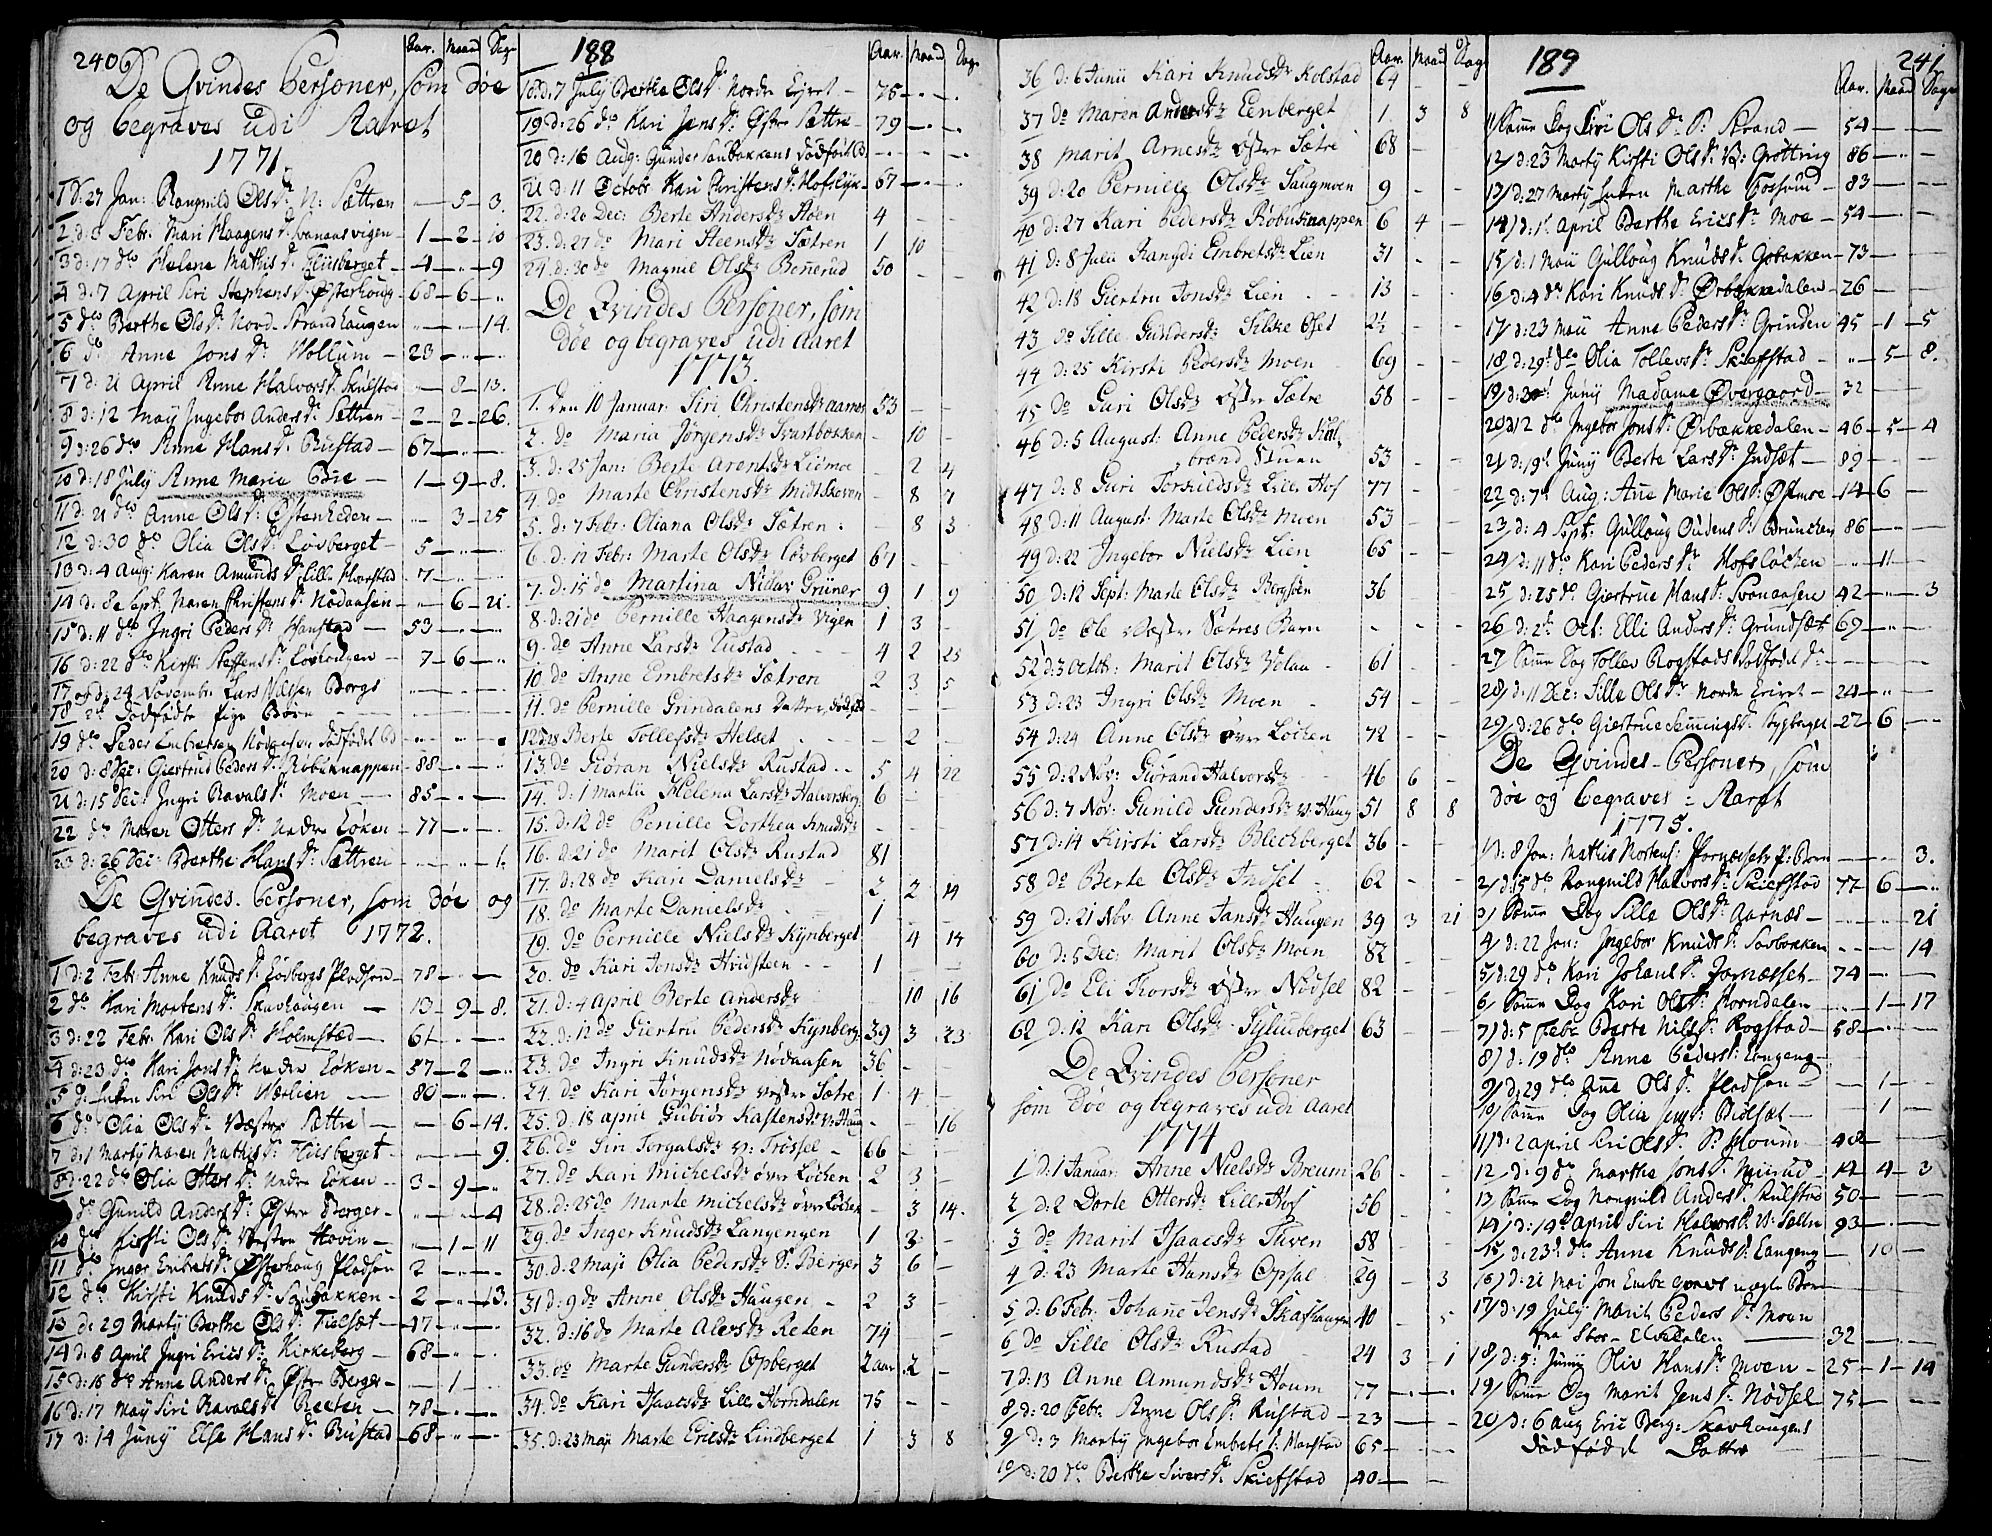 240
De Qvindes Personer, som døe
og begraves udi Aaret
1771
Aar. Maan. Dage
1 d: 27 Jan: Rangnild Ols Dr: N: Sættren — 5 — 3.
2 d: 3 Febr. Mari Haagens Dr: Svenaasvigen — 1 — 2 — 10
3 d: 17 dto Helene Mathis Dr: Flisberget — 4 — " — 9
4 d: 7 April Siri Stephens Dr: Østerhoug — 68 — 6 — "
5 dto Berthe Ols Dr: Nord-Strandhaugen — " — " — 14.
6 do Anne Jons Dr: Hollum — 23 — " — "
7 d: 21 April Anne Halvors Dr: Skulstad — 8 — 13.
8 d: 12 Maij Ingebor Anders Dr: Sættren — 2 — 2 — 26.
9 d: 26 dto Anne Hans Dr: Rustad — 67 — " — "
10 d: 18 July Anne Marie Böie — 1 — 9 — 8.
11 d: 21 dto Anne Ols Dr: Østenheden — " — 3 — 25
12 d: 30 do Olia Ols Dr: Løvberget — 5 — " — "
13 d: 4 Aug: Karen Amunds Dr: Lille Harstad — 7 — " — "
14 d: 8 Sept. Maren Christens Dr: Nødaasen — " — 6 — 21.
15 d: 11 dto Ingri Peders Dr: Harstad — 53 — " — "
16 d: 22 dto Kirsti Steffens Dr: — 7 — 6 — "
17 og d: 24 Novembr. Lars Nilssen Borgs
18 2de Dødfødte Pige Børn
19 dto Peder Embretsen Nødaasen Dødfødt B
20 d: 8 Dec: Giertrud Peders Dr: Robuknappen — 88 — " — "
21 d: 15 Dec: Ingri Ravals Dr: Moen — 85 — " — "
22 do Maren Otters Dr: Nedre Løken — 77 — " — "
23 d: 26 Dec: Berthe Hans Dr: Sættren — " — " — 1.
De Qvindes Personer, som døe og
begraves udi Aaret 1772.
1 d: 2 Febr. Anne Knuds Dr: Løvbergs Pladsen — 78 — " — "
2 dto Kari Mortens Dr: Skavhaugen — 13 — 9 — 8.
3 d: 22 Febr. Kari Ols Dr: Holmstad — 61 — " — "
4 d: 23 dto Kari Jons Dr: Nedre Løken — 57 — 2 — "
5 d: Enken Siri Ols Dr: Nærlien — 80 — " — "
6 do Olia Ols Dr: Væstre Sættre — " — 6 — 14.
7 d: 1 Martij Maren Mathis Dr: Flisberget — " — " — 9.
8 d: 22 do Olia Otters Dr: Nedre Løken — 3 — 9 — "
9 do Gunild Anders Dr: Østre Berger — " — " — 4
10 dto Kirsti Ols Dr: Væstre Hovin — " — 1 — 11
11 do Inger Embrets Dr: Østerhoug Pladsen — 2 — " — "
12 do Kirsti Knuds Dr: Saubakken — 2 — " — 13.
13 d: 29 Martij Berthe Ols Dr: Fielsæt — 47 — " — "
14 d: 6 April Ingri Erics Dr: Kirkeberg — 68 — " — "
15 d: 16 do Anne Anders Dr: Østre Berger — " — 1 — "
16 d: 17 Maij Siri Ravals Dr: Reeten — 78 — " — "
17 d: 14 Junij Else Hans Dr: Rustad — 68 — " — "
188
Aar. Maan. Dag.
18 d: 7 July Berthe Ols Dr: Nordre Eyret — 76 — " — "
19 d: 26 do Kari Jens Dr: Østre Sættre — 79 — " — "
20 d: 16 Aug: Gunder Saubakkens Dødfødt B.
21 d: 11 Octobr. Kari Christens Dr: Hofslyk — 67 — " — "
22. d: 20 Dec: Berte Andersdr. Stoen 4
23. d: 27 do Mari Steensdr. Sætren 1 10
24. d: 30 do Magnil Olsdr. Bennerud 50
De Qvindes Personer, som
døe og begraves udi Aaret
1773.
1. Den 10 Januar. Siri Christensdr. Aarnes 53
2. do Maria Jørgensdr. Svartbakken 10
3. d: 25 Jan: Berte Arentsdr. Lidmoe 2 4
4. do Marte Christensdr. Midtskoven 8 7
5. d: 7 Febr: Oliana Olsdr. Sætren 8 3
6 d: 11 Febr: Marte Olsdr. Løvberget 61
7. d: 15 do Martina Nidar Grüner 9 1 9
8. d: 21 do Pernille Haagensdr. Vigen 1 3
9. do Anne Larsdr. Rustad 4 2 25
10 do Anne Embretsdr. Sætren 2 3 5
11. do Pernille Grindalens Datter, dødfød
12 d: 28 Berte Tollefsdr. Helset 2
13. do Giøran Nielsdr. Rustad 5 4 22
14. d: 1 Martii Helena Larsdr. Halvorsberg 6
15. d: 12 do Pernille Dorthea Knudsdr.
16. d: 21 do Marit Olsdr. Rustad 81
17. d: 28 do Kari Danielsdr. 2 2 14
18. do Marte Danielsdr. 1
19. do Pernille Nielsdr. Kynberget 4 14
20. do Kari Jensdr. Hvisteen 1
21. d: 4 April Berte Andersdr. 10 16
22. d: 12 do Giertru Pedersdr. Kynberg 39 3 23
23. do Ingri Knudsdr. Nødaasen 36
24. do Kari Jørgensdr. Vester Sætre 1 4
25. d. 18 April Gubiør Kastensdr. V: Haug 16
26. do Siri Torgalsdr. V: Trøsset 66
27. do Kari Michelsdr. Øver Løchen 2 3
28. d: 25 do Marte Michelsdr. Øver Løchen 3 14
29. do Inger Knudsdr. Langengen 1 3
30. d: 2 Maji Olia Pedersdr. S: Berger 3 6
31 d: 9 do Anne Olsdr. Haugen 2 3
32. d: 16 do Marte Alersdr. Reten 74
33. do Marte Gundersdr. Opberget 2 aar 2
34. do Kari Isaacsdr. Lille Horndalen 75
35. d: 23 Maji Marte Ericsdr. Lindberget 1 3 8
Aar. Maan. Dag.
36 d: 6 Junii Kari Knudsdr. Kolstad 64
37 do Maren Andersdr. Eenberget 1. 3 8
38 Marit Arnesdr. Øster Sætre 68
39 d: 20 Pernille Olsdr. Saugmoen 9
40 d: 27 Kari Pedersdr. Robuknappen 6 4
41 d: 8 Julii Rangdi Embretsdr. Lien 31
42 d: 18 Giertru Jonsdr. Lien 13
43 do Sille Gundersdr. Silske Oset 2½
44 d: 25 Kirsti Pedersdr. Moen 69
45 do Guri Olsdr. Øster Sætre 58
46 d: 5 August: Anne Pedersdr. Kol
brend Stuen 53
47 d: 8 Guri Torkildsdr. Lille Hof 77
48 d: 11 August: Marte Olsdr. Moen 53
49 d: 22 Ingebor Nielsdr. Lien 65
50 d: 12 Sept: Marte Olsdr. Bergsøen 36
51 do Ole Vester Sætres Barn
52 d: 3 Octbr: Marit Olsdr. Velaa 61
53 d: 23 Ingri Olsdr. Moen 54
54 d: 24 Anne Olsdr. Øvre Løchen 72
55 d: 2 Nov: Giørand Halvorsdr. 46 6
56 d: 7 Nov: Gunild Gundersdr. V: Haug 51 8 8
57 d: 14 Kirsti Larsdr. Blechberget 36
58 do Berte Olsdr. Indset 62
59 d: 21 Nov. Anne Jansdr. Haugen 39 3 21
60 d: 5 Dec: Marit Olsdr. Moen 82
61 do Eli Thorsdr. Øster Nødsel 82
62 d: 12 Kari Olsdr. Syliuberget 63
De Qvindes Personer
som døe og begraves udi Aaret
1774
1 d: 1 Januar: Anne Nielsdr. Breum 26
2 d: 2 Dorte Ottersdr. Lille Hof 56
3 do Marit Isaacsdr. Tiven 58
4 d: 23 Marte Hansdr. Opsal 29 3
5 d: 6 Febr. Johanne Jensdr. Skafhaugen 40 5
6 do Sille Olsdr. Rustad 24 3 1
7 d: 13 Anne Amundsdr. Houm 77
8/ d: 20 Febr. Anne Ols Dr: Rustad — 23
9/ d: 3 Martij Ingebor Embets Dr: Harstad 65
10/ d: 20 dto Berthe Sivers Dr: Skiefstad — 40
189
241
Aar. Maan. Dage
11/ Samme Dag Siri Ols Dr: S: Strand — 54
12/ d: 23 Martij Kirsti Ols Dr: V: Grøttring 86
13/ d: 27 Martij Enken Marthe Fossund — 83
14/ d: 1 April Berthe Erics Dr: Moe — 54
15/ d: 1 Maij Gulloug Knuds Dr: Gobakken — 73
16 d: 4 do Kari Knuds Dr: Ørbækkedalen — 26
17/ d: 23 Maij Anne Peders Dr: Grinden 45 — 1 — 5
18 d: 29 dto Olia Tollevs Dr: Skiefstad — " — 5 — 8.
19/ d: 30 Junij Madame Øvergaard — 32
20 d: 12 dto Ingebor Jons Dr: Ørbækkedalen — 46 — 5 — 4
21/ d: 19 Junij Berte Lars Dr: Indsæt — 89
22 d: 7 Aug: Anne Marie Ols Dr: Østmoe — 14 6
23/ d: 4 Sept: Gulloug Oudens Dr: 86
24/ d: 11 do Kari Peders Dr: Hofsløkken — " — 11
25 d: 25 do Giertrue Hans Dr: Svenaasen 42 — " — 3
26/ d: 2 Oct: Elli Anders Dr: Grundsæt 69
27 Samme Dag Tollev Rogstads Dødfødt Dr:
28/ d: 11 Dec: Sille Ols Dr: Nordre Eriret — 24 — "
29/ d: 26 dto Giertrue Hemmings Dr: Bygbaget — 22 6
De Qvindes-Personer, som
døe og begraves i Aaret
1775.
1 d: 8 Jan: Mathis Mortens: Jornæssets P: Børn — " — 3.
2/ d: 15 do Rangnild Halvors Dr: Skiefstad 77 — 6
3/ Samme Dag Sille Ols Dr: Aarnæs — " — 21
4/ d: 22 Jan: Ingebor Knuds Dr: Saubakken — 14
5/ d: 29 do Kari Johans Dr: Jornæsset — 74
6/ Samme Dag Kari Ols Dr: Horndalen — 1 — 17
7/ d: 5 Febr. Berte Nils Dr: Rogstad — 58
8/ d: 19 dto Anne Peders Dr: Langeng
9/ d: 29 dto Anne Ols Dr: Pladsen — 1
10/ Samme Dag Olia Jens Dr: Bidsæt — 1
11/ d: 2 April Siri Ols Dr: S: Houm — 40
12/ d: 9 do Marthe Jons Dr: Nierud — 14 — 4 — 3
13 Samme Dag Rangnild Anders Dr: Kulstad 50
14/ d: 14 April Siri Halvors Dr: N: Sættre 93
15/ d: 23 dto Anne Knuds Dr: Langeng — 10
16/ d: 21 Mai Jon Embr. Barn
17/ d: 19 July Marit Peders Dr: Moen
fra Stor-Elvedalen — 32
18/ d: 5 Junij Oliv Hans Dr: Moen — 25 — 1 — 14
19/ Samme Dag Marit Jens Dr: Nødsel 75
20/ d: 6 Aug Eric Berg: Skavhaugens
dødfødde Dattre